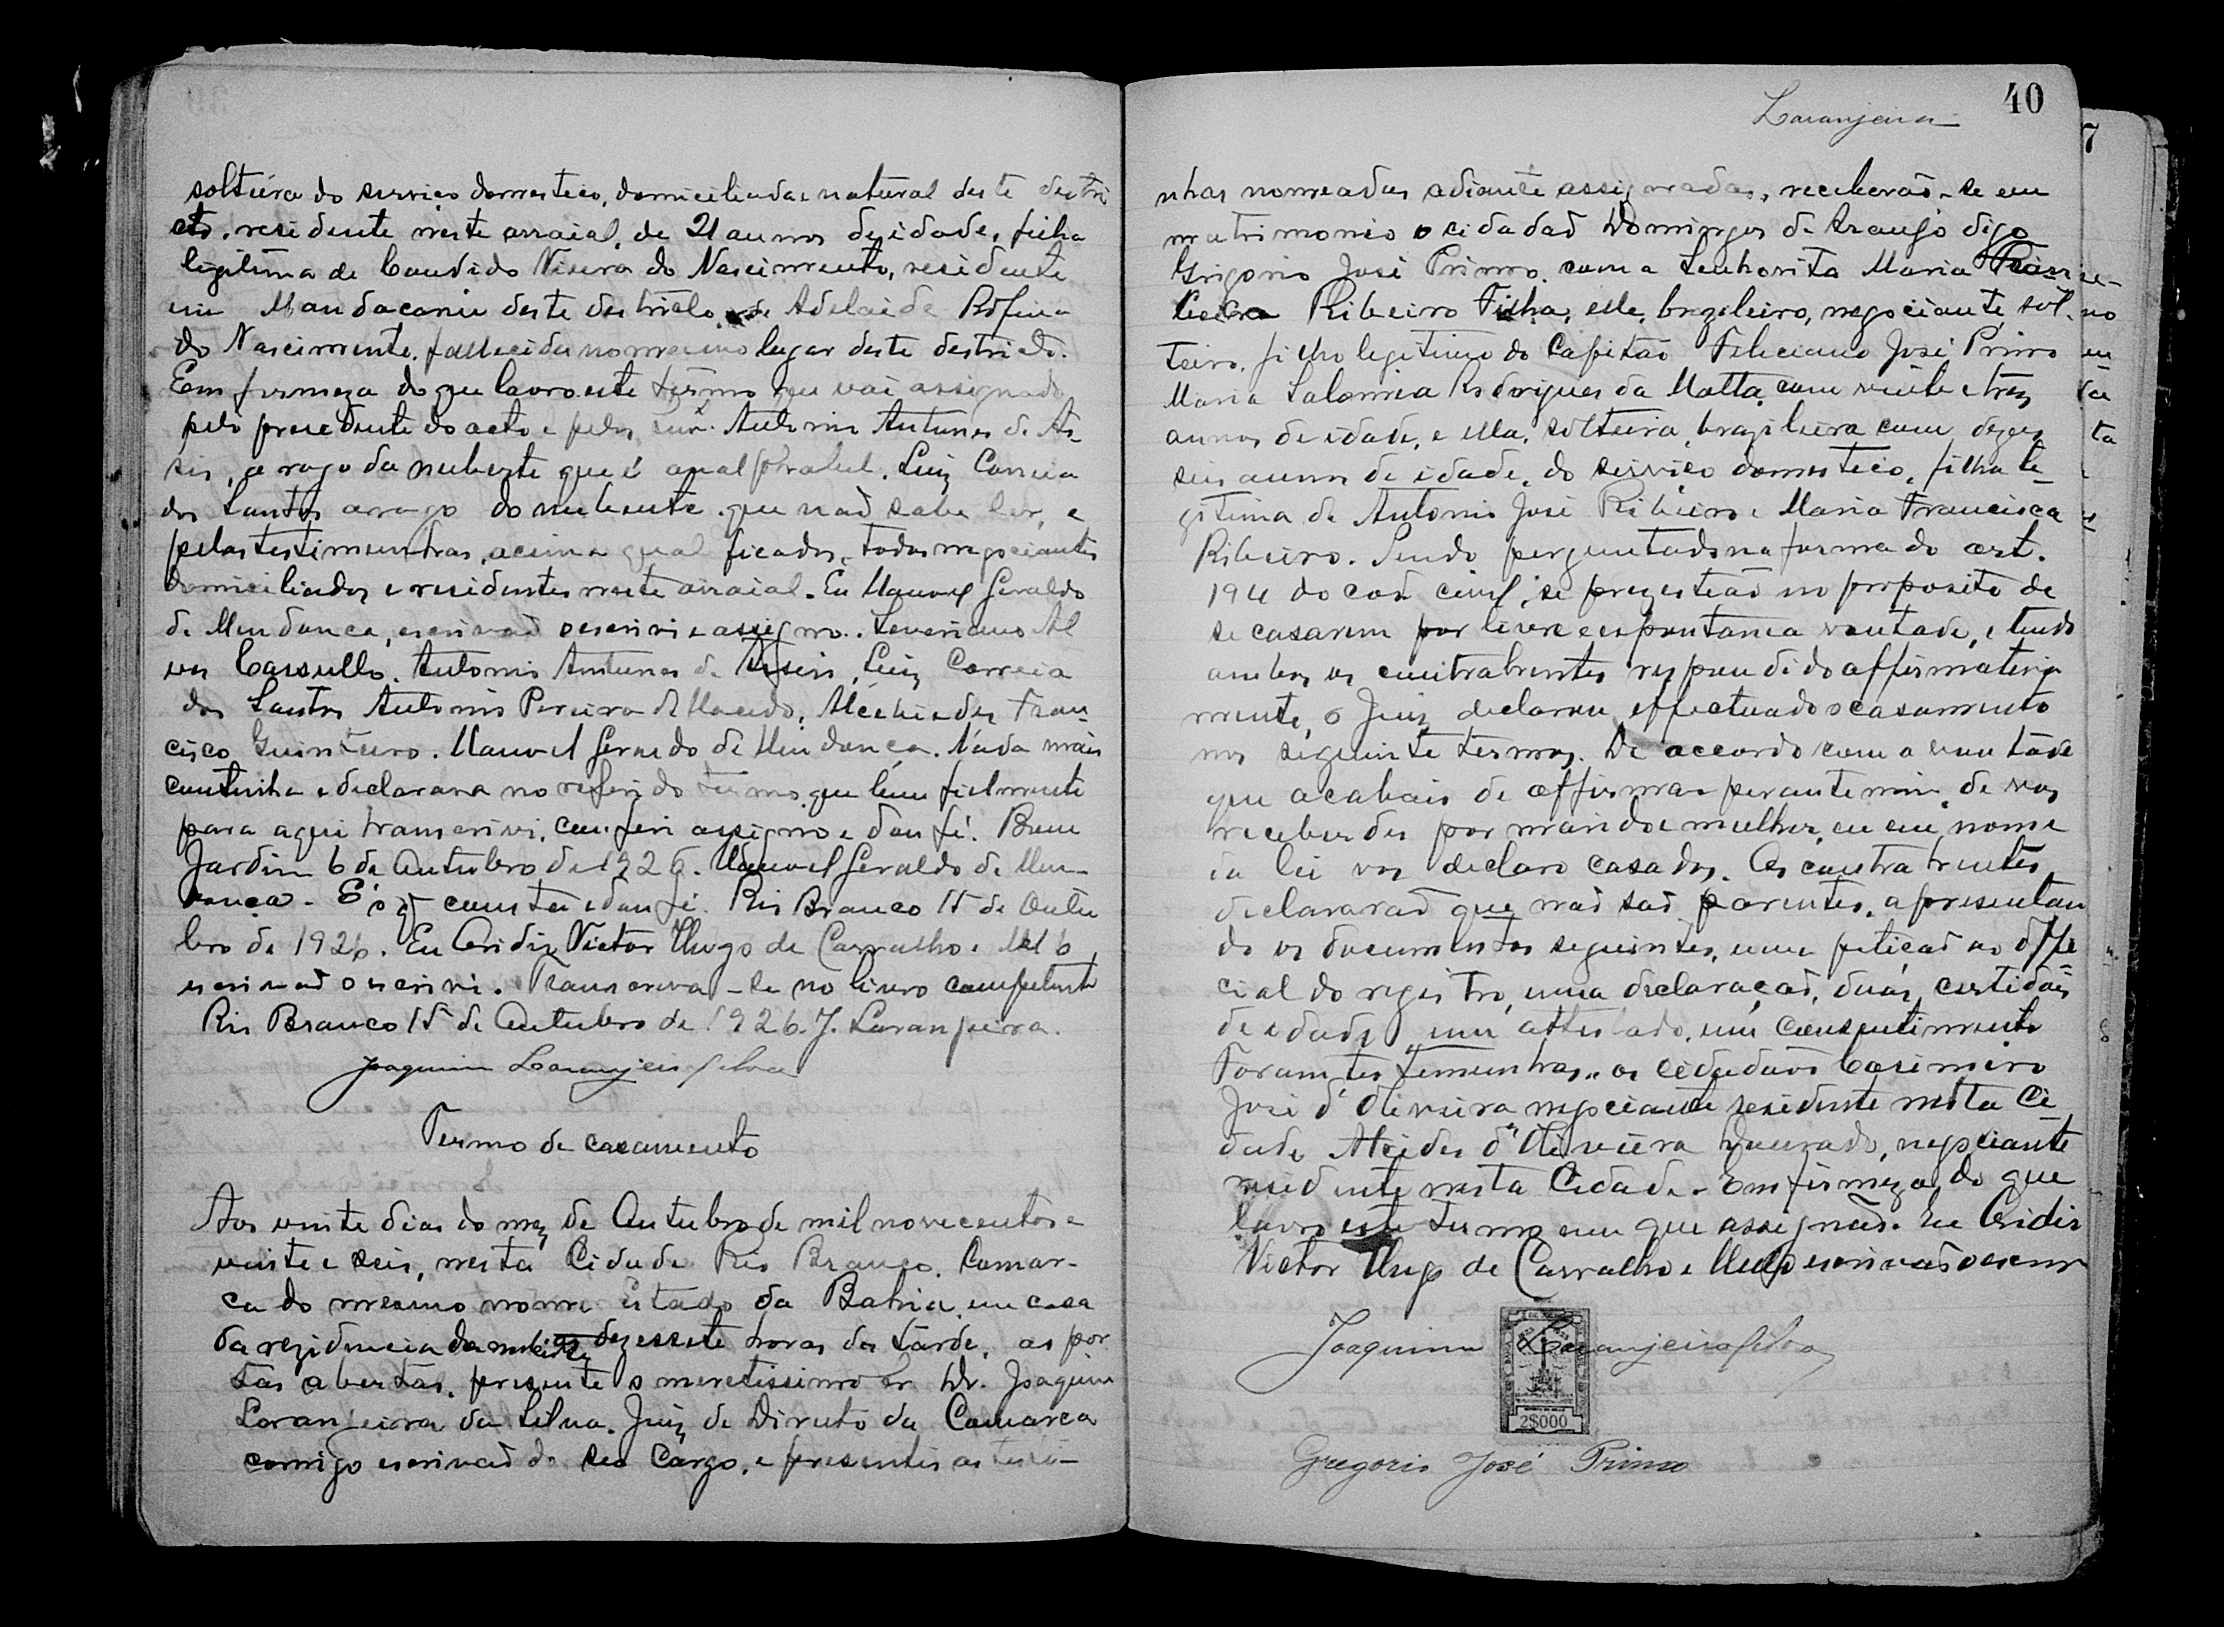 solteira do serviço domestico, domiciliada e natural deste destri
cto, residente neste arraial, de 21 annos de idade, filha
legitima de Candido Vieira do Nascimento, residente
em Mandacarú deste destricto, e de Adelaide Rofina
do Nascimento, fallecida no mesmo lugar deste destricto.
Em firmeza do que lavro este termo que vai assignado
pelo presedente do acto e pelos Snr. Antonio Antunes de As-
sis, a rogo da nubente que é analphabet. Luiz Correia
dos Santos arrogo do nubente que naõ sabe ler, e
pelas testimunhas, acima qual ficados, todos negociantes
domiciliados e residentes neste arraial. Eu Manoel Geraldo
de Mendonca, escrivaõ o escrivi e assigno. Severiano Al
ves Carsullo. Antonio Antunes de Assis, Luiz Correia
dos Santos Antonio Pereira de Macedo, Alcebiades Fran-
cisco Guinteiro. Manoel Geraldo de Mendonça. Nada mais
continha e declarava no referido termo que bem fielmente
para aqui transcrivi, conferi assigno e dou fé. Bom
Jardim 6 de Outubro de 1926. Manoel Geraldo de Men-
donça. E' o q consta e dou fé. Rio Branco 15 de Outu
bro de 1926. Eu Ovidio Victor Hugo de Carvalho e Mello
escrivaõ o escrivi. Transcreva-se no livro competente
Rio Branco 15 de Outubro de 1926. J. Laranjeira.
Joaquim Laranjeira Silva
Termo de casamento
Aos vinte dias do mez de Outubro de mil novecentos e
vinte e seis, nesta Cidade Rio Branco, Comar-
ca do mesmo nome Estado da Bahia em casa
da rezidencia da nubente dezessete horas da tarde, as por
tas abertas, presente o meretissimo Sr. Dr. Joaquim
Laranjeira da Silva, Juiz de Direito da Comarca
comigo escrivaõ do seo cargo, e presentes as testi-
Laranjeira
40
nhas nomeadas adiante assignadas, receberaõ-se em
matrimonio o cidadaõ Domingos de Araujo digo
Grigorio José Primo, com a Senhorita Maria Fran
cisca Ribeiro Filha, elle, brazileiro, negociante, sol-
teiro, filho legitimo do Capitão Feliciano José Primo
Maria Salomia Rodrigues da Motta, com vinte e trez
annos de idade, e ella, solteira, brazileira com dezes
seis annos de idade, do serviço domestico, filha le-
gitima de Antonio José Ribeiro e Maria Francisca
Ribeiro. Sendo perguntados na forma do art.
194 do cod. civil, se prezesteaõ no proposito de
se casarem por livre e espontania vontade, e tendo
ambos os contrahentes respondido affirmativa
mente, o Juiz declarou effectuado o casamento
nos seguinte termos. De accordo com a vontade
que acabais de affirmar perante mim, de vos
receberdes por marido e mulher, eu em nome
da lei vos declaro casados. Os contrahentes
declararaõ que naõ saõ parentes, apresentan
do os documentos seguintes, uma petiçaõ ao offi
cial do registro, uma declaraçaõ, duas certidões
de idade um attestado, um consentimento
Foram testemunhas, os cidadaõs Casimiro
José d'Oliveira negociante residente nesta Ci
dade Alcides d'Oliveira Dourado, negociante
residente nesta Cidade. Em firmeza do que
lavro este termo em que assignaõ. Eu Ovidio
Victor Hugo de Carvalho e Mello escrivaõ o escrivi
Joaquim Laranjeira Silva
2$000
Gregorio José Primo